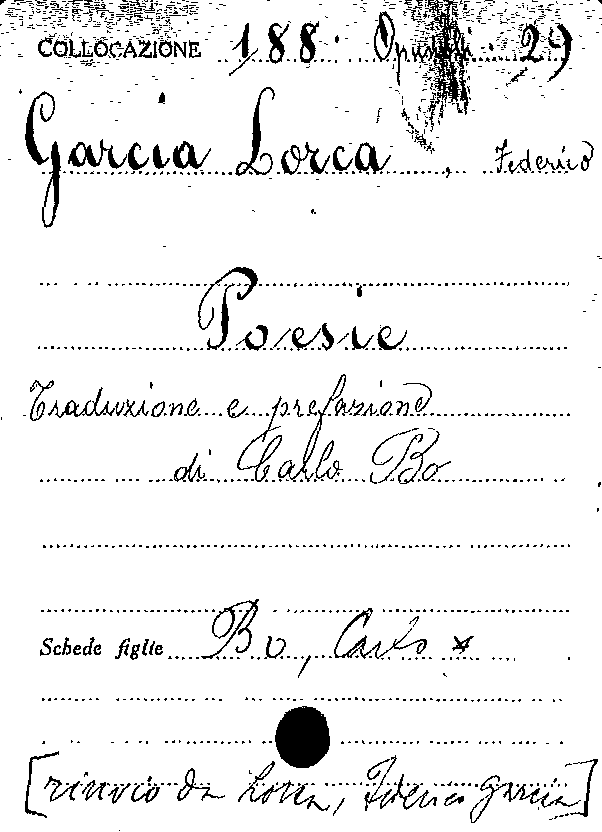 COLLOCAZIONE 188. Opuscoli. 29
Garcia Lorca, Federico
Poesie
Traduzione e prefazione
di Carlo Bo
Schede figlie Bo, Carlo *
[rinvio da Lorca, Federico Garcia]